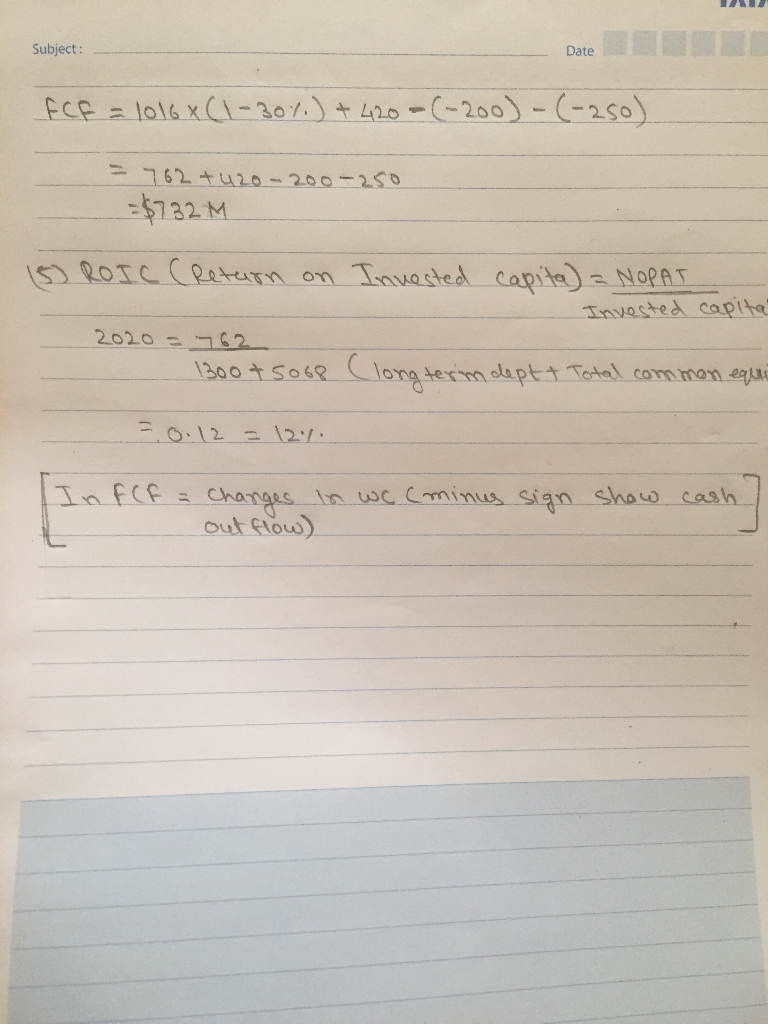 TATA
Subject:
Date
FCF = 1016 x (1-30%.) + 420 - (-200) - (-250)
= 762 + 420 - 200 - 250
= $732 M
(5) ROIC (Return on Invested capita) = NOPAT
Invested capita
2020 = 762
1300 + 5068 (long term dept + Total common equi
= 0.12 = 12%.
[In FCF = changes in WC (minus sign show cash
out flow)]